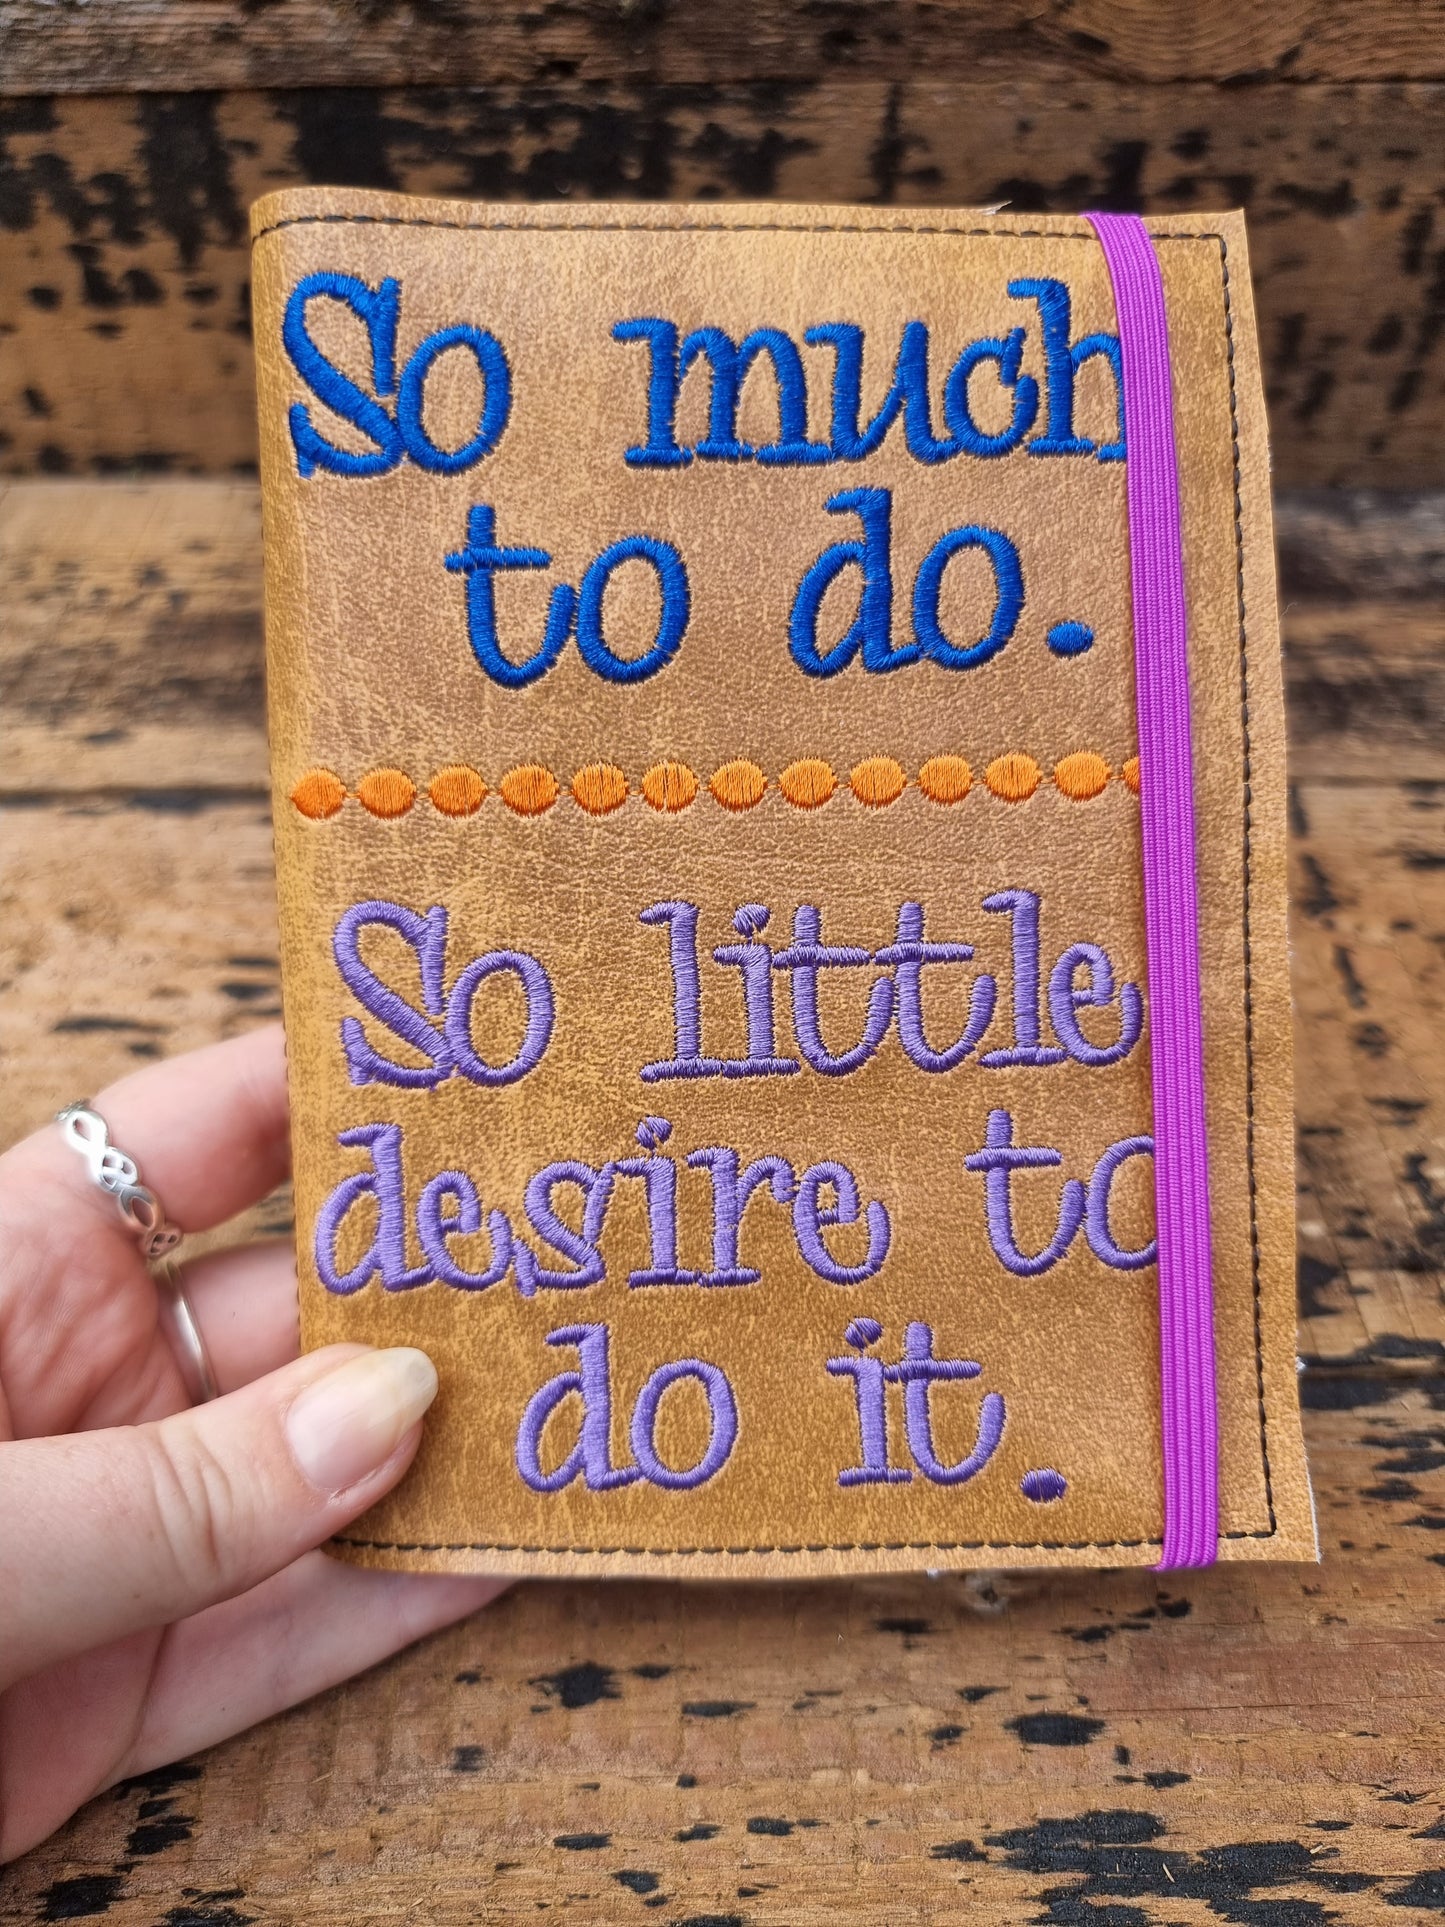 So much
to do.
So little
desire to
do it.